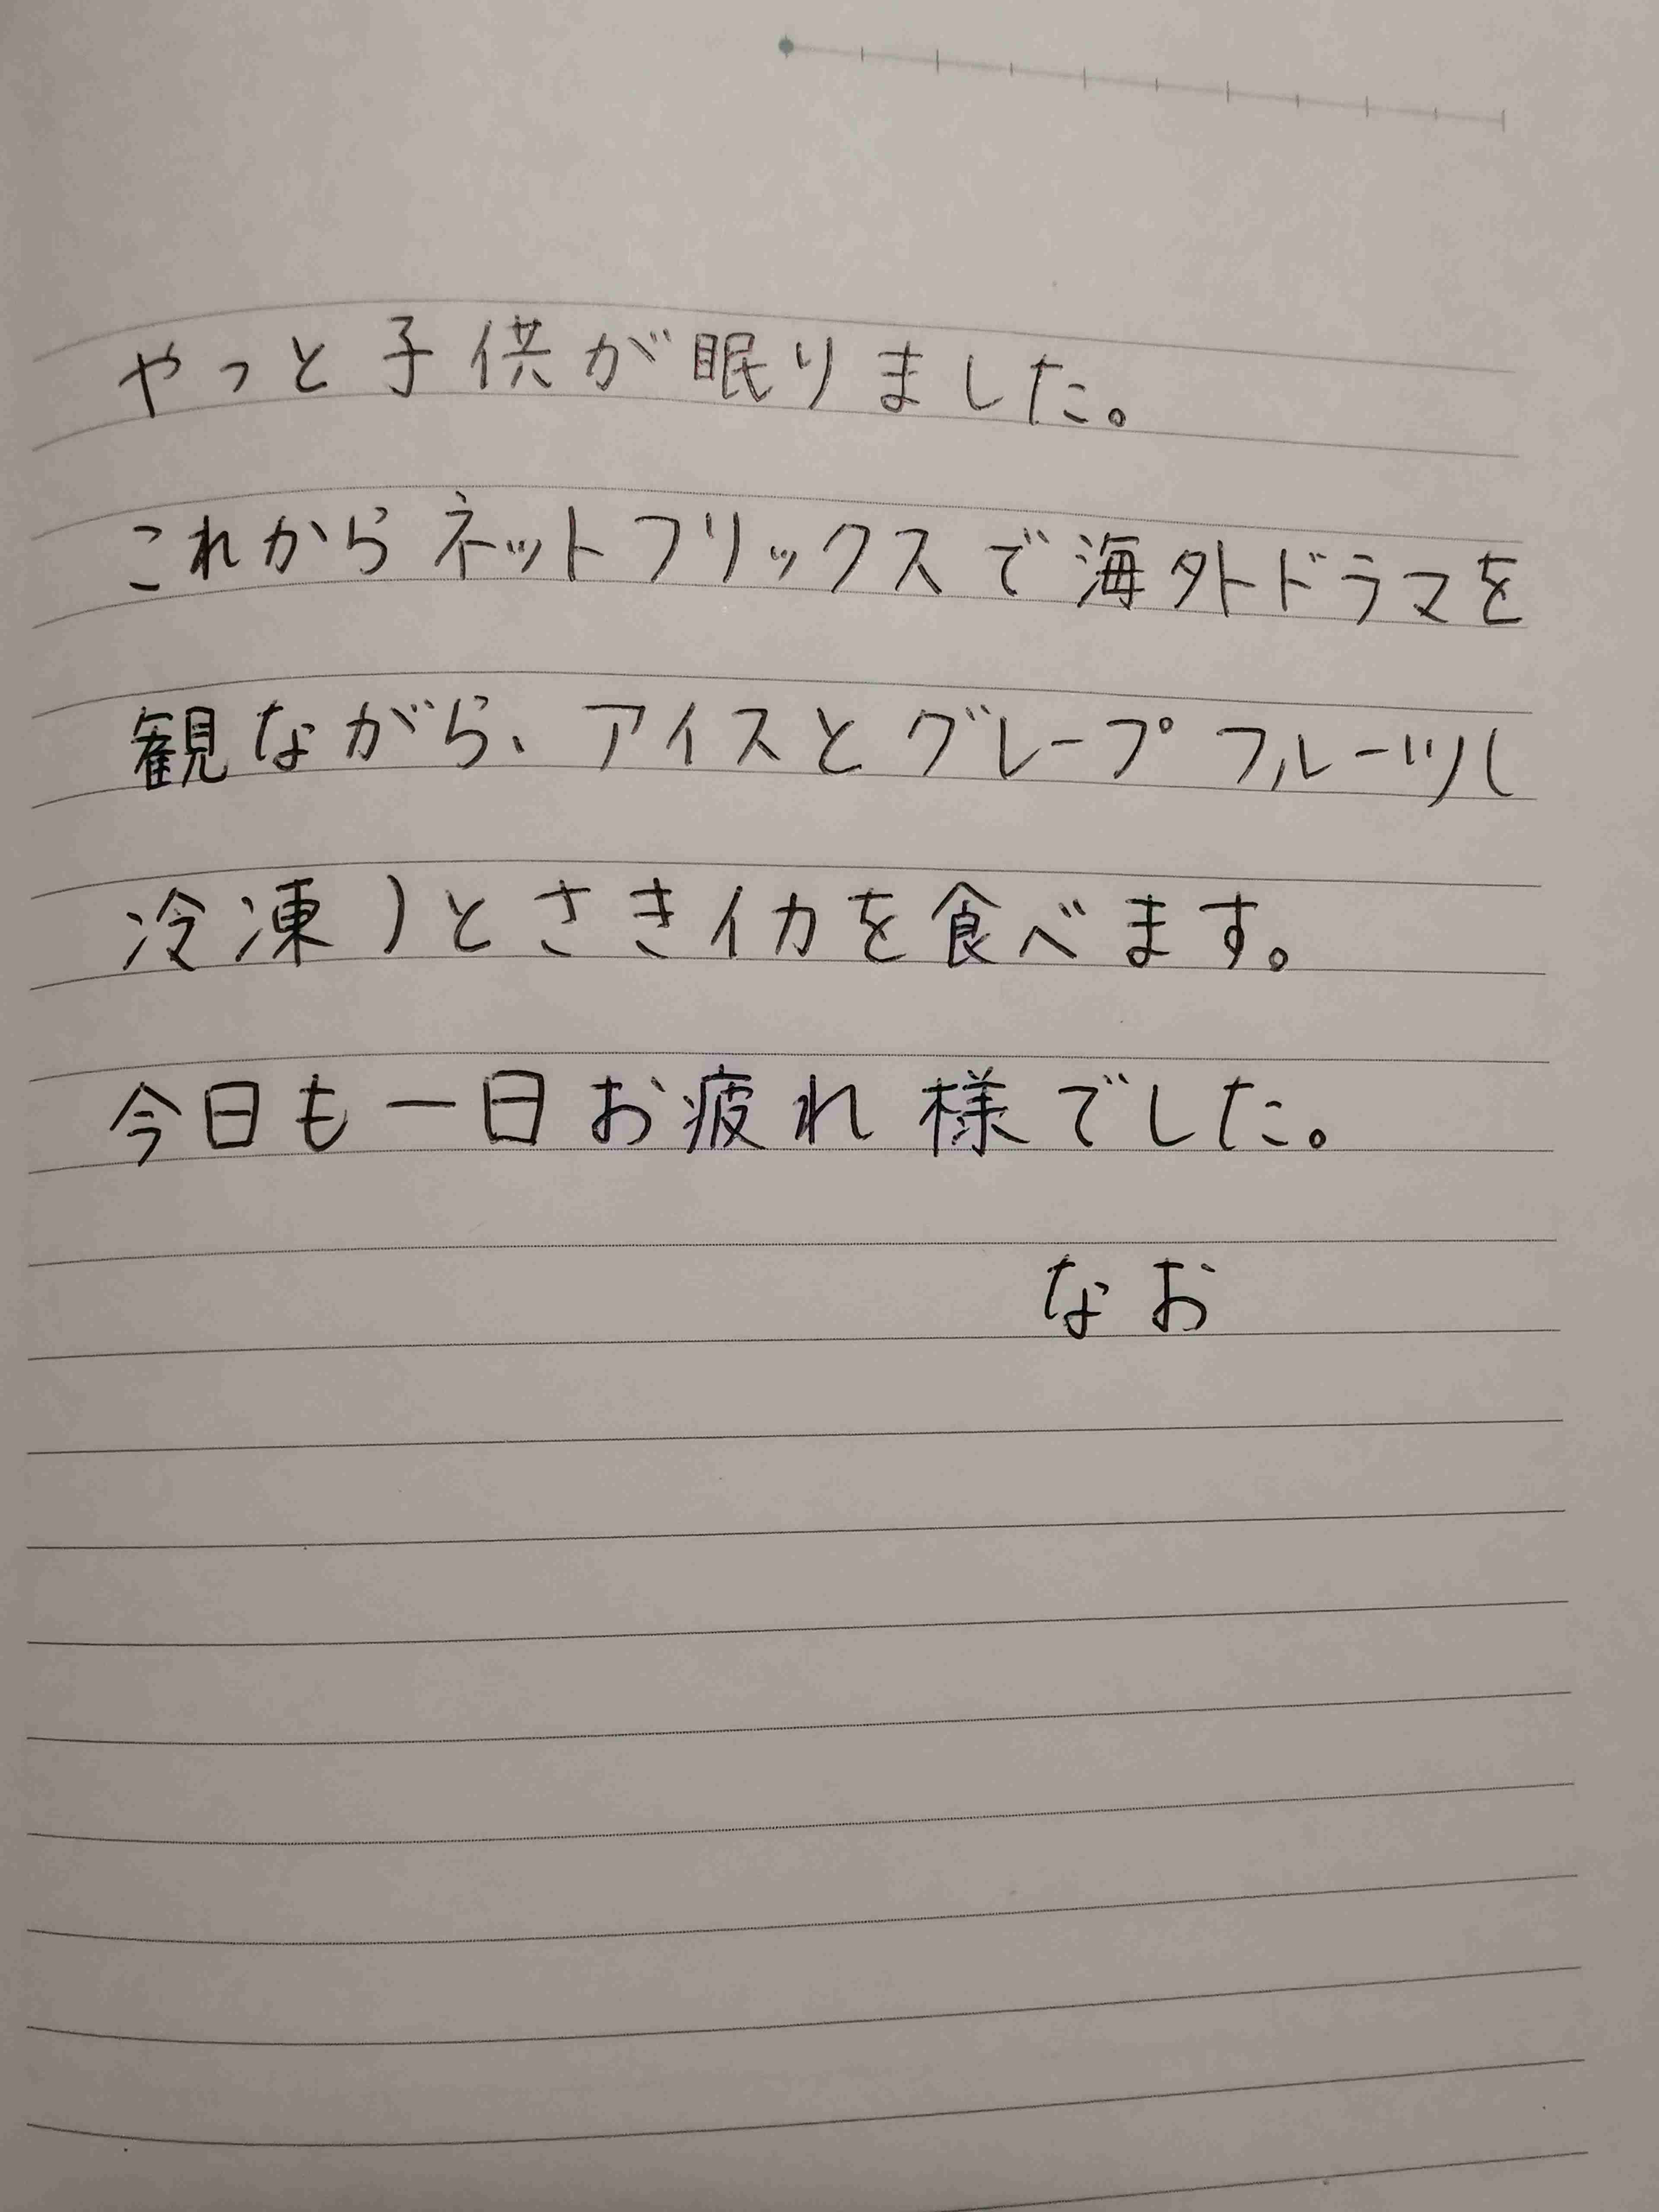 やっと子供が眠りました。
これからネットフリックスで海外ドラマを
観ながら、アイスとグレープフルーツ(
冷凍)とさきイカを食べます。
今日も一日お疲れ様でした。
なお